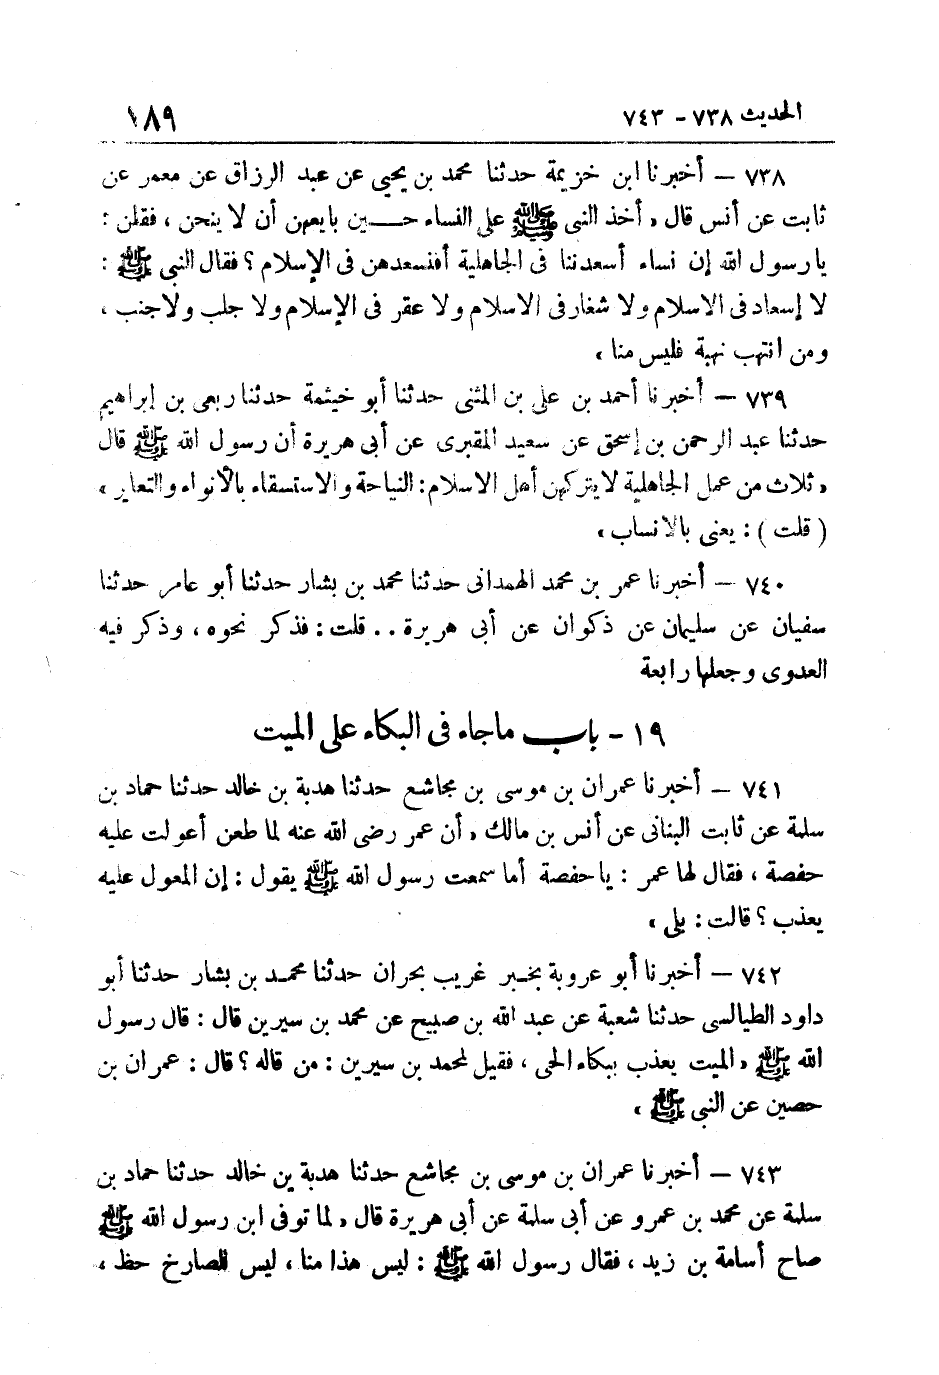 الحديث ٧٣٨ - ٧٤٣ ١٨٩
٧٣٨ – أخبرنا ابن خزيمة حدثنا محمد بن يحيى عن عبد الرزاق عن معمر عن
ثابت عن أنس قال « أخذ النبي ﷺ على النساء حين بايعهن أن لا ينحن ، فقلن :
يا رسول الله إن نساء أسعدننا فى الجاهلية أفنسعدهن فى الإسلام ؟ فقال النبي ﷺ :
لا إسعاد فى الاسلام ولا شغار فى الاسلام ولا عقر فى الإسلام ولا جلب ولا جنب ،
ومن انتهب نهبة فليس منا »
٧٣٩ – أخبرنا أحمد بن على بن المثنى حدثنا أبو خيثمة حدثنا ربعى بن إبراهيم
حدثنا عبد الرحمن بن إسحق عن سعيد المقبرى عن أبى هريرة أن رسول الله ﷺ قال
« ثلاث من عمل الجاهلية لا يتركهن أهل الاسلام : النياحة والاستسقاء بالأنواء والتعاير »
( قلت ) : يعنى بالانساب »
٧٤٠ – أخبرنا عمر بن محمد الهمدانى حدثنا محمد بن بشار حدثنا أبو عامر حدثنا
سفيان عن سليمان عن ذكوان عن أبى هريرة .. قلت : فذكر نحوه ، وذكر فيه
العدوى وجعلها رابعة
١٩ - باب ما جاء فى البكاء على الميت
٧٤١ – أخبرنا عمران بن موسى بن مجاشع حدثنا هدبة بن خالد حدثنا حماد بن
سلمة عن ثابت البنانى عن أنس بن مالك « أن عمر رضى الله عنه لما طعن أعولت عليه
حفصة ، فقال لها عمر : يا حفصة أما سمعت رسول الله ﷺ يقول : إن المعول عليه
يعذب ؟ قالت : بلى »
٧٤٢ – أخبرنا أبو عروبة بخبر غريب بحران حدثنا محمد بن بشار حدثنا أبو
داود الطيالسى حدثنا شعبة عن عبد الله بن صبيح عن محمد بن سيرين قال : قال رسول
الله ﷺ « الميت يعذب ببكاء الحى ، فقيل لمحمد بن سيرين : من قاله ؟ قال : عمران بن
حصين عن النبي ﷺ »
٧٤٣ – أخبرنا عمران بن موسى بن مجاشع حدثنا هدبة بن خالد حدثنا حماد بن
سلمة عن محمد بن عمرو عن أبى سلمة عن أبى هريرة قال « لما توفى ابن رسول الله ﷺ
صاح أسامة بن زيد ، فقال رسول الله ﷺ : ليس هذا منا ، ليس للصارخ حظ ،